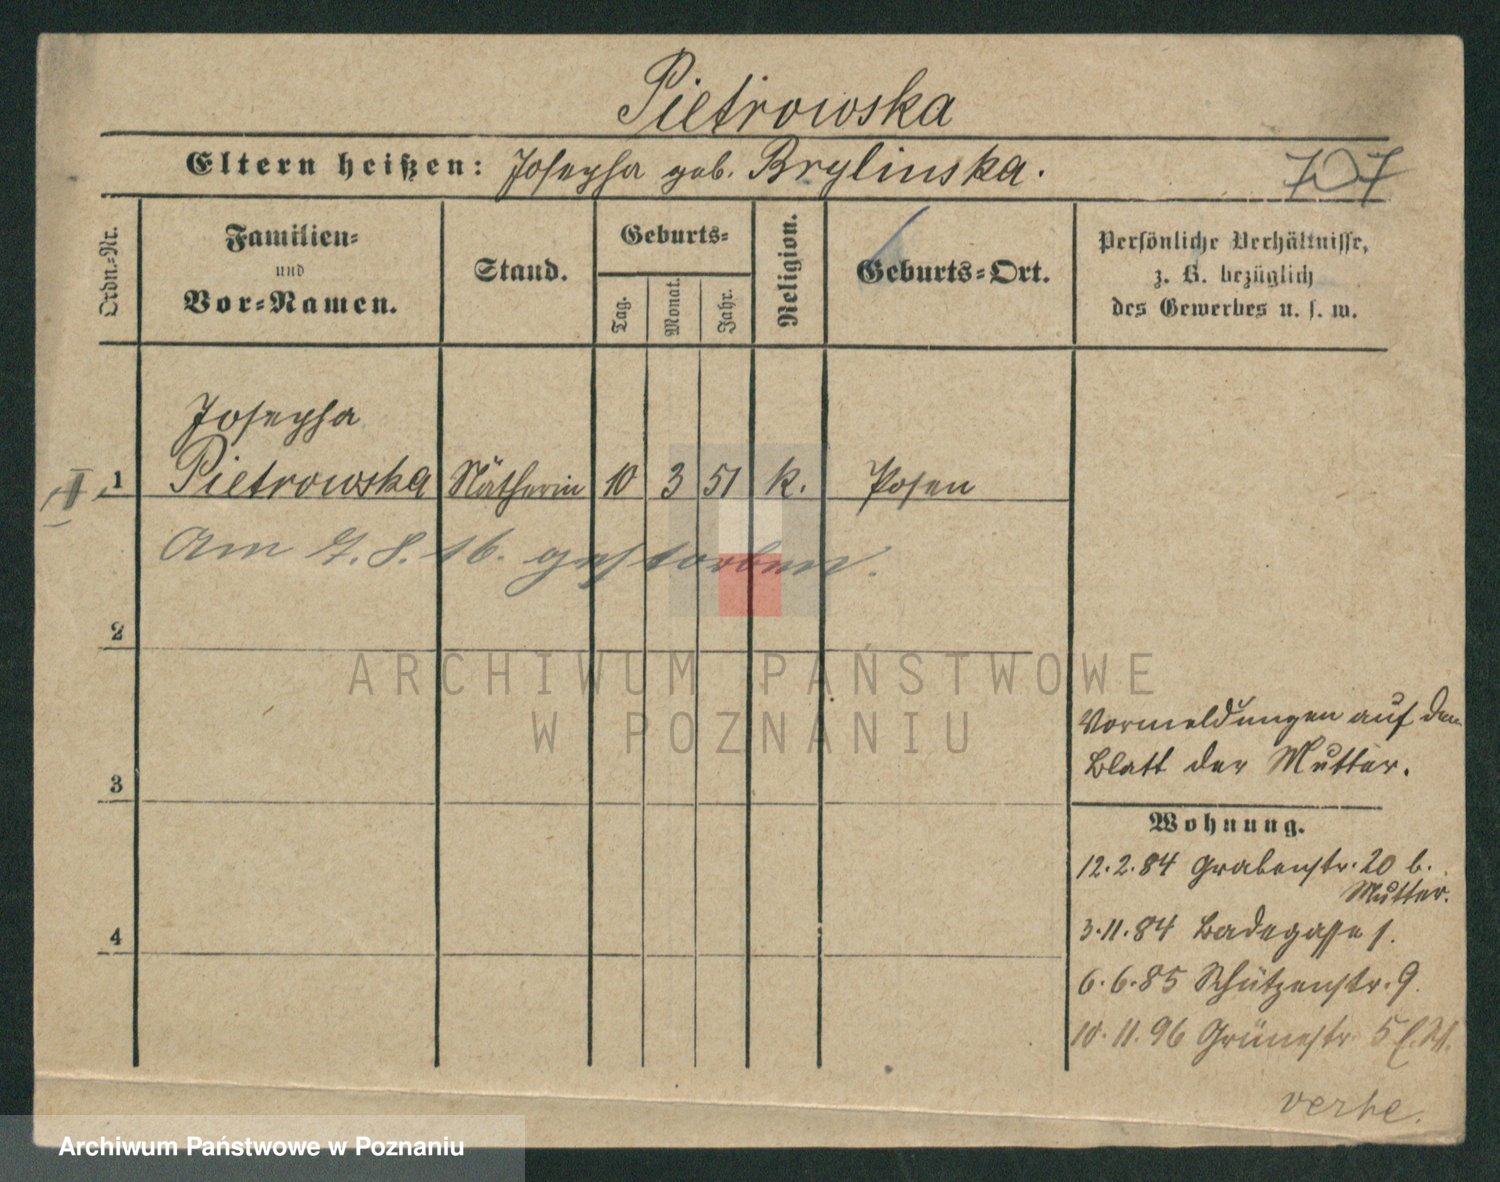 Pietrowska
Eltern heißen: Josepha geb. Brylinska.
707
Ordn.-Nr.
Familien-
und
Vor-Namen.
Stand.
Geburts-
Tag.
Monat.
Jahr.
Religion.
Geburts-Ort.
Persönliche Verhältnisse,
z. B. bezüglich
des Gewerbes u. s. w.
Josepha
II 1 Pietrowska Nätherin 10 3 51 k. Posen
Am 7.8.16. gestorben.
2
ARCHIWUM PAŃSTWOWE
W POZNANIU
Vormeldungen auf dem
Blatt der Mutter.
3
Wohnung.
12.2.84 Grabenstr. 20 b.
Mutter.
4
3.11.84 Badegasse 1.
6.6.85 Schützenstr. 9.
10.11.96 Grünestr. 5
verhe.
Archiwum Państwowe w Poznaniu